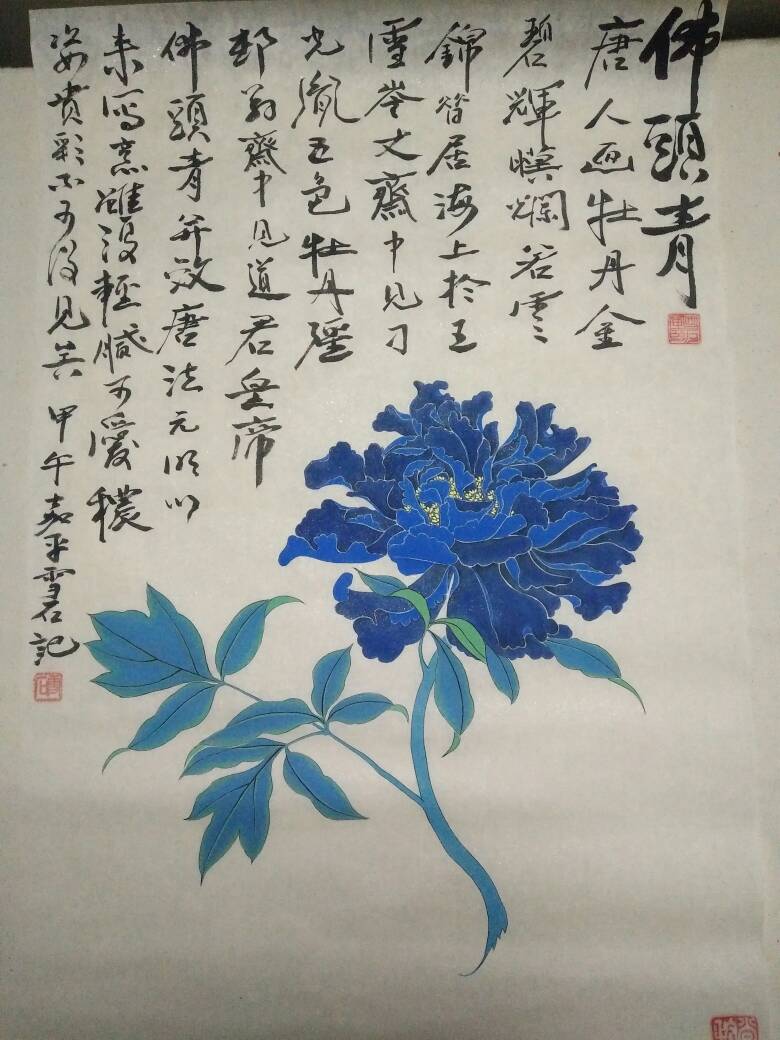 佛頭青
唐人画牡丹金
碧輝暎爛若雲
錦昝居海上於王
雪岑丈齋中見刁
光胤五色牡丹殛
邨翁齋中見道君皇帝
佛頭青并效唐法元明以
来寫意雖没輕膩可愛穠
姿貴彩不可复見矣
甲午嘉平雪石記